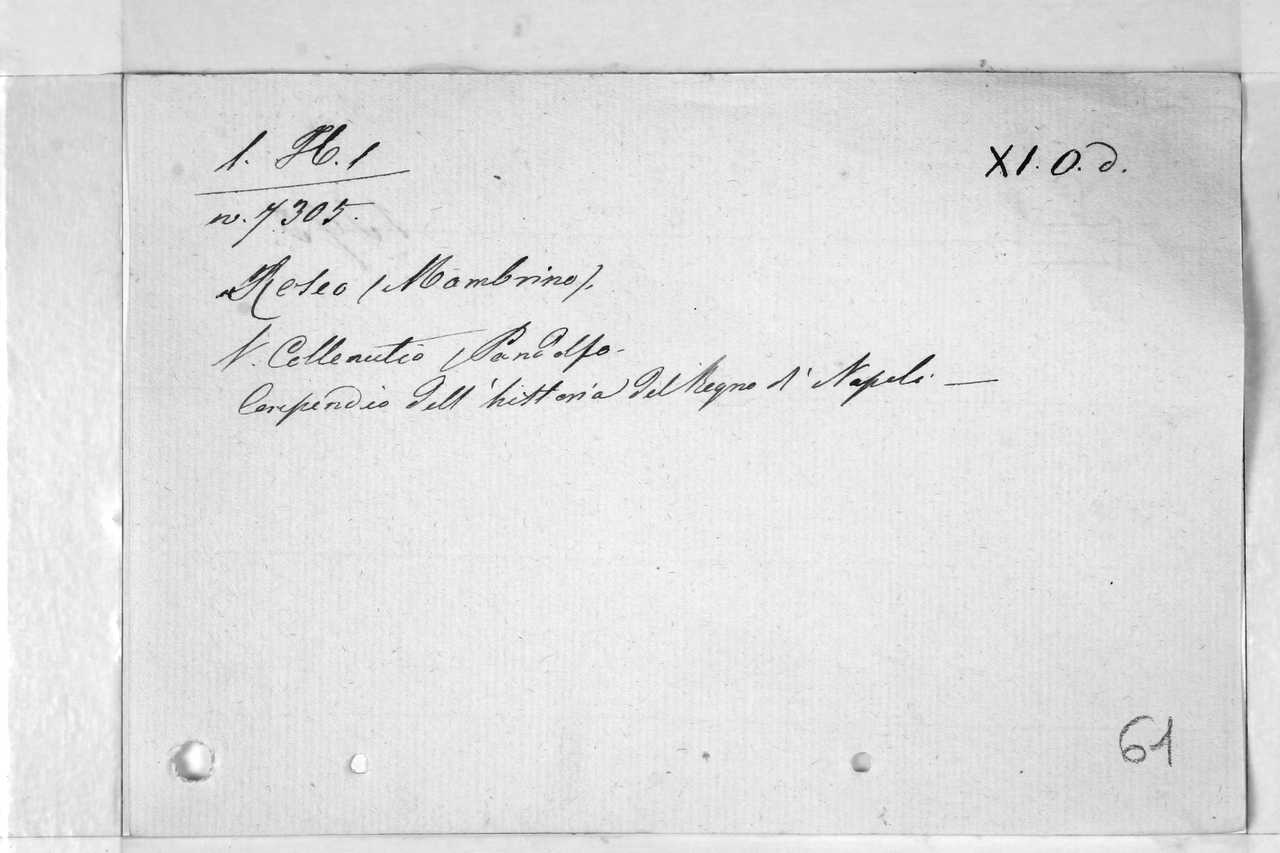 1. H. 1
XI. O. d.
n. 7305.
Roseo (Mambrino).
V. Collenutio, Pandolfo.
Compendio dell' histtoria del Regno di Napoli. —
61